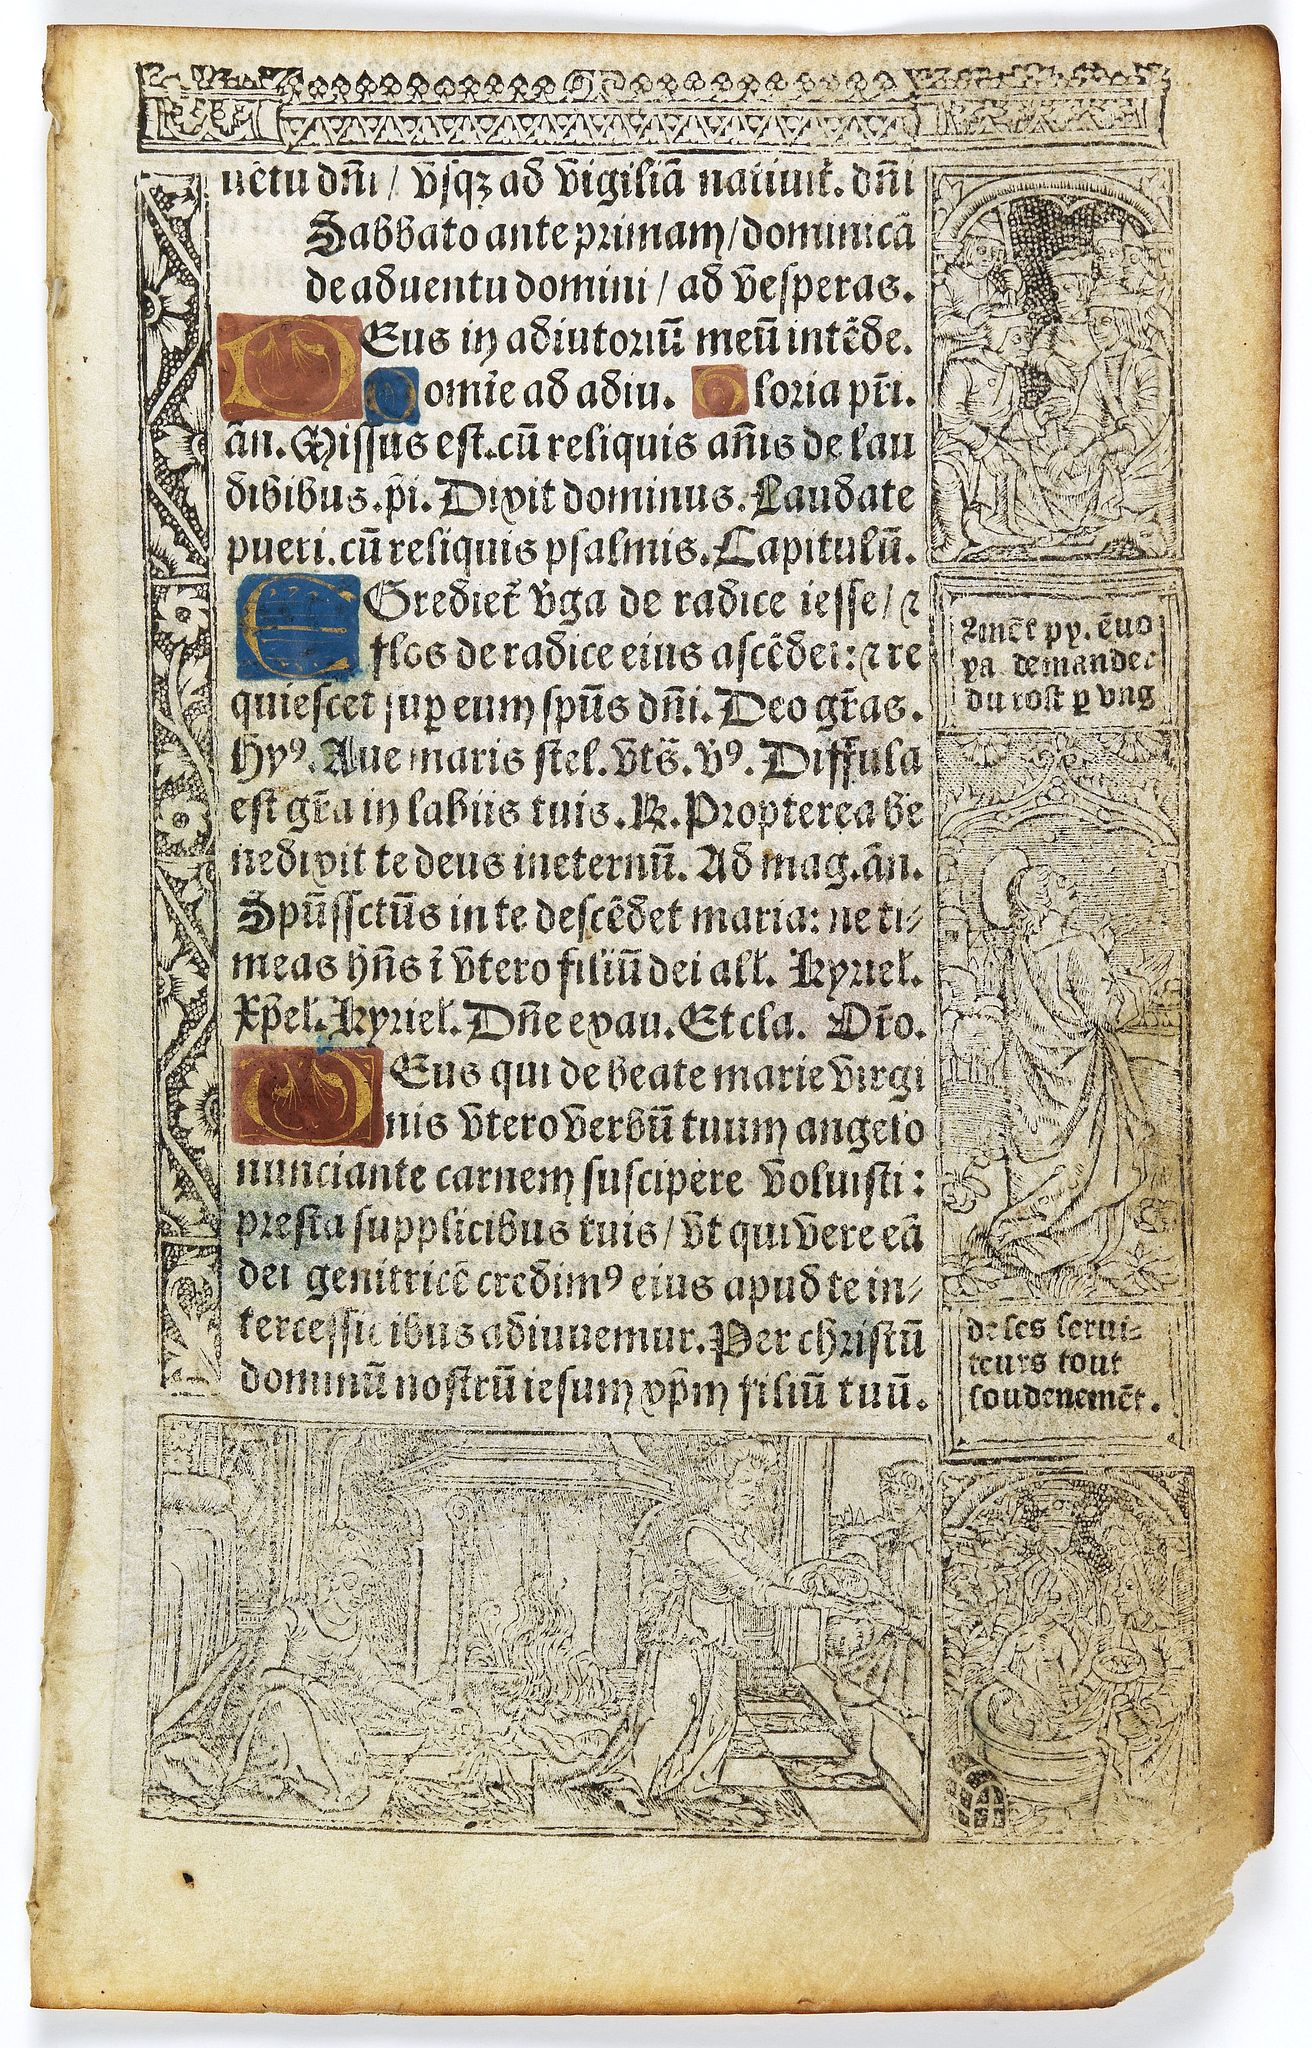 uẽtu dñi / vsqꝫ ad vigiliã natiuit̃. dñi
Sabbato ante primam / dominicã
de aduentu domini / ad vesperas.
DEus in adiutoriũ meũ intẽde.
Domĩe ad adiu. Gloria pr̃i.
ãn. Missus est. cũ reliquis añis de lau
dibibus. p̃i. Dixit dominus. Laudate
pueri. cũ reliquis psalmis. Capitulũ.
EGrediet̃ ṽga de radice iesse / ⁊
flos de radice eius ascẽdet: ⁊ re
quiescet suꝑ eum spũs dñi. Deo gr̃as.
Hyꝰ. Aue maris stel. vts̃. vꝰ. Diffusa
est gr̃a in labiis tuis. ℟. Propterea be
nedixit te deus in eternũ. Ad mag. ãn.
Spũssctũs in te descẽdet maria: ne ti⸗
meas hñs ĩ vtero filiũ dei all. Kyriel.
Xp̃el. Kyriel. Dñe exau. Et cla. Or̃o.
DEus qui de beate marie virgi
nis vtero verbũ tuum angelo
nunciante carnem suscipere voluisti:
presta supplicibus tuis / vt qui vere eã
dei genitricẽ credimꝰ eius apud te in⸗
tercessio ibus adiuuemur. Per christũ
dominũ nostrũ iesum xp̃m filiũ tuũ.
Amẽt py. ẽuo
ya demander
du rost ꝑ vng
de ses serui⸗
teurs tout
soudenemẽt.